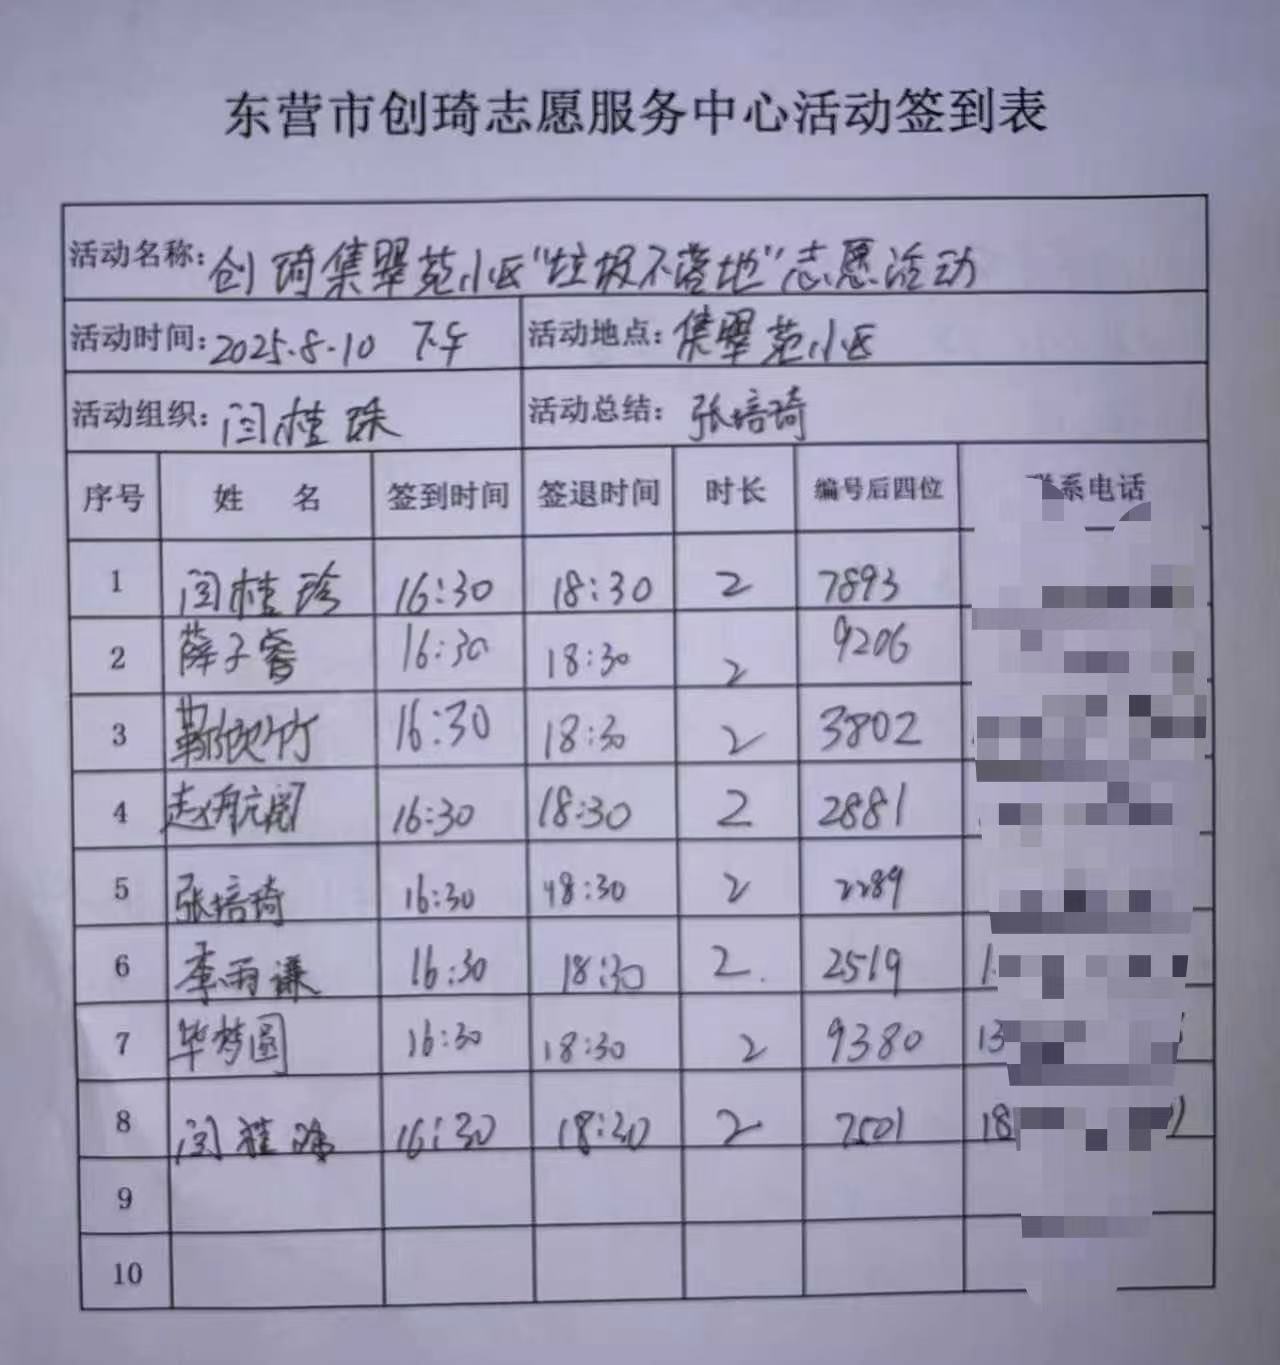 东营市创琦志愿服务中心活动签到表
活动名称：创琦集翠苑小区“垃圾不落地”志愿活动
活动时间：2025.8.10 下午 活动地点：集翠苑小区
活动组织：闫桂珠 活动总结：张培琦
序号 姓 名 签到时间 签退时间 时长 编号后四位 系电话
1 闫桂珍 16:30 18:30 2 7893
2 薛子睿 16:30 18:30 2 9206
3 16:30 18:30 2 3802
4 赵航阅 16:30 18:30 2 2881
5 张培琦 16:30 18:30 2 2289
6 李雨谦 16:30 18:30 2 2519
7 毕梦圆 16:30 18:30 2 9380 13
8 闫桂珠 16:30 18:30 2 7501 18
9
10